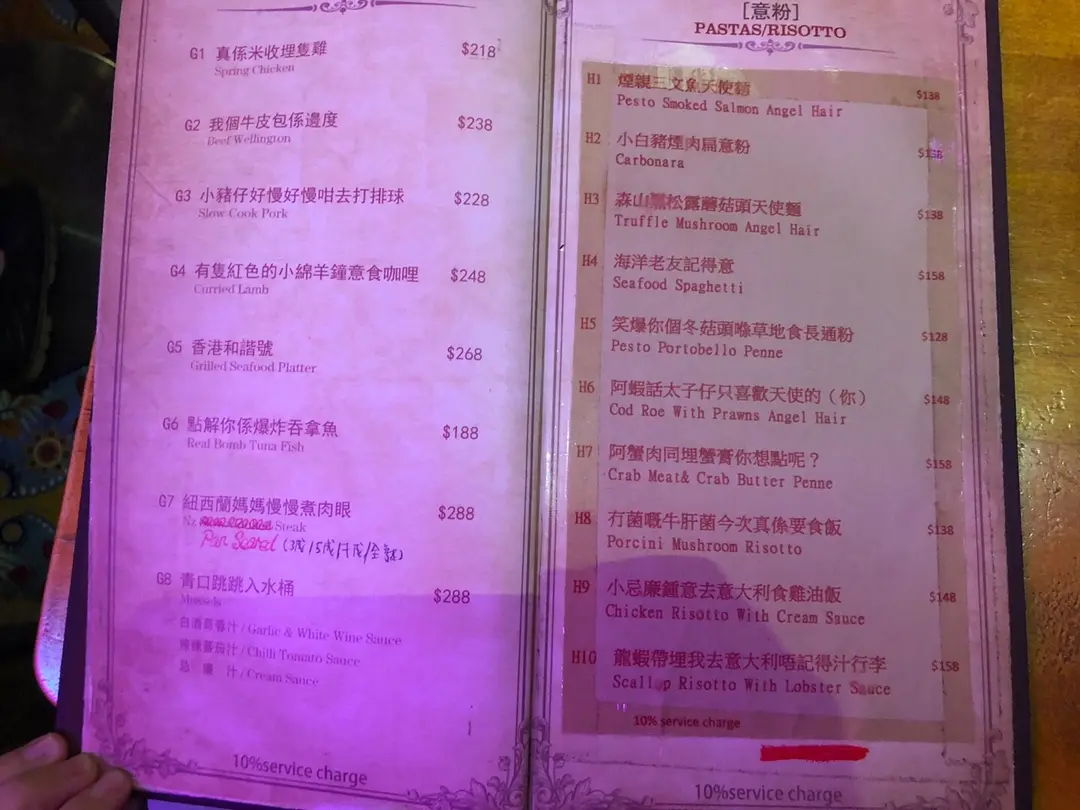 G1 真係米收埋隻雞 $218
Spring Chicken
G2 我個牛皮包係邊度 $238
Beef Wellington
G3 小豬仔好慢好慢咁去打排球 $228
Slow Cook Pork
G4 有隻紅色的小綿羊鐘意食咖哩 $248
Curried Lamb
G5 香港和諧號 $268
Grilled Seafood Platter
G6 點解你係爆炸吞拿魚 $188
Real Bomb Tuna Fish
G7 紐西蘭媽媽慢慢煮肉眼 $288
Nz Steak
Pan Seared (3成/5成/7成/全熟)
G8 青口跳跳入水桶 $288
Mussels
白酒蒜香汁 / Garlic & White Wine Sauce
辣椒蕃茄汁 / Chilli Tomato Sauce
忌廉汁 / Cream Sauce
10%service charge
[意粉]
PASTAS/RISOTTO
H1 煙親三文魚天使麵 $138
Pesto Smoked Salmon Angel Hair
H2 小白豬煙肉扁意粉 $138
Carbonara
H3 森山黑松露蘑菇頭天使麵 $138
Truffle Mushroom Angel Hair
H4 海洋老友記得意 $158
Seafood Spaghetti
H5 笑爆你個冬菇頭喺草地食長通粉 $128
Pesto Portobello Penne
H6 阿蝦話太子仔只喜歡天使的（你） $148
Cod Roe With Prawns Angel Hair
H7 阿蟹肉同埋蟹膏你想點呢？ $158
Crab Meat& Crab Butter Penne
H8 冇菌嘅牛肝菌今次真係要食飯 $138
Porcini Mushroom Risotto
H9 小忌廉鍾意去意大利食雞油飯 $148
Chicken Risotto With Cream Sauce
H10 龍蝦帶埋我去意大利唔記得汁行李 $158
Scallop Risotto With Lobster Sauce
10% service charge
10%service charge